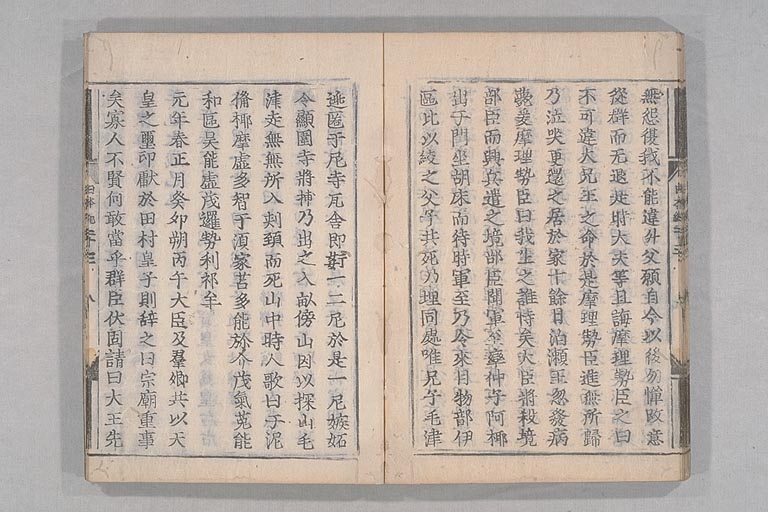 無怨後我不能違外父願自今以後勿憚改意
從群而无退是時大夫等且誨摩理勢臣之曰
不可違大兄王之命於是摩理勢臣進無所歸
乃泣哭更還之居於家十餘日泊瀬王忽發病
薨爰摩理勢臣曰我生之誰恃矣大臣將殺境
部臣而興兵遣之境部臣聞軍至率仲子阿椰
出于門坐胡床而待時軍至乃令來目物部伊
區比以綾之父子共死乃埋同處唯兄子毛津
逃匿于尼寺瓦舍即奸一二尼於是一尼嫉妬
令顯圍寺將捕乃出之入畝傍山因以探山毛
津走無無所入刺頚而死山中時人歌曰于泥
備椰摩虛多智于須家苔多能弥介茂氣菟能
和區吴能虛茂邏勢利祁牟
元年春正月癸卯朔丙午大臣及羣卿共以天
皇之璽印獻於田村皇子則辞之曰宗廟重事
矣寡人不賢何敢當乎群臣伏固請曰大王先